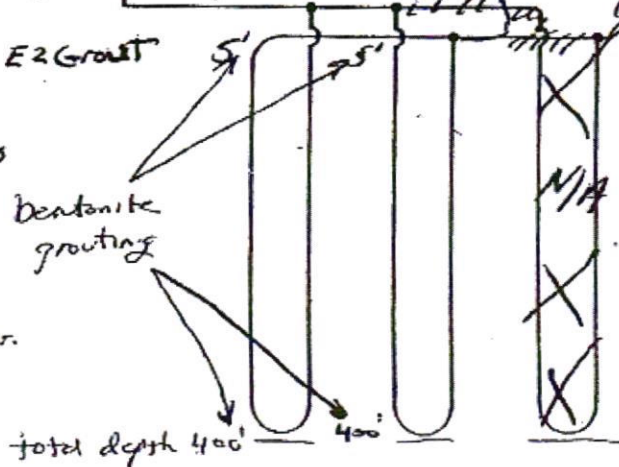 E2 Grout 5' 5'
bentonite
grouting
N/A
total depth 400' 400'